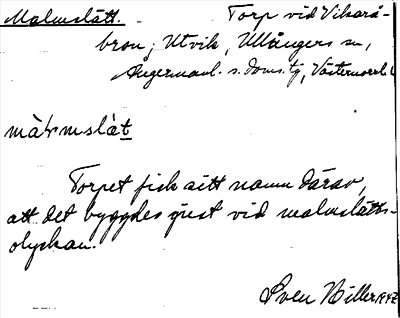 Malmslätt. Torp vid Vikarå-
bron, Utvik, Ullångers sn,
Ångermanl. s. doms. tg, Västernorrl. l
Torpet fick sitt namn därav,
att det byggdes just vid malmslätts-
olyckan.
Sven Biller 1942